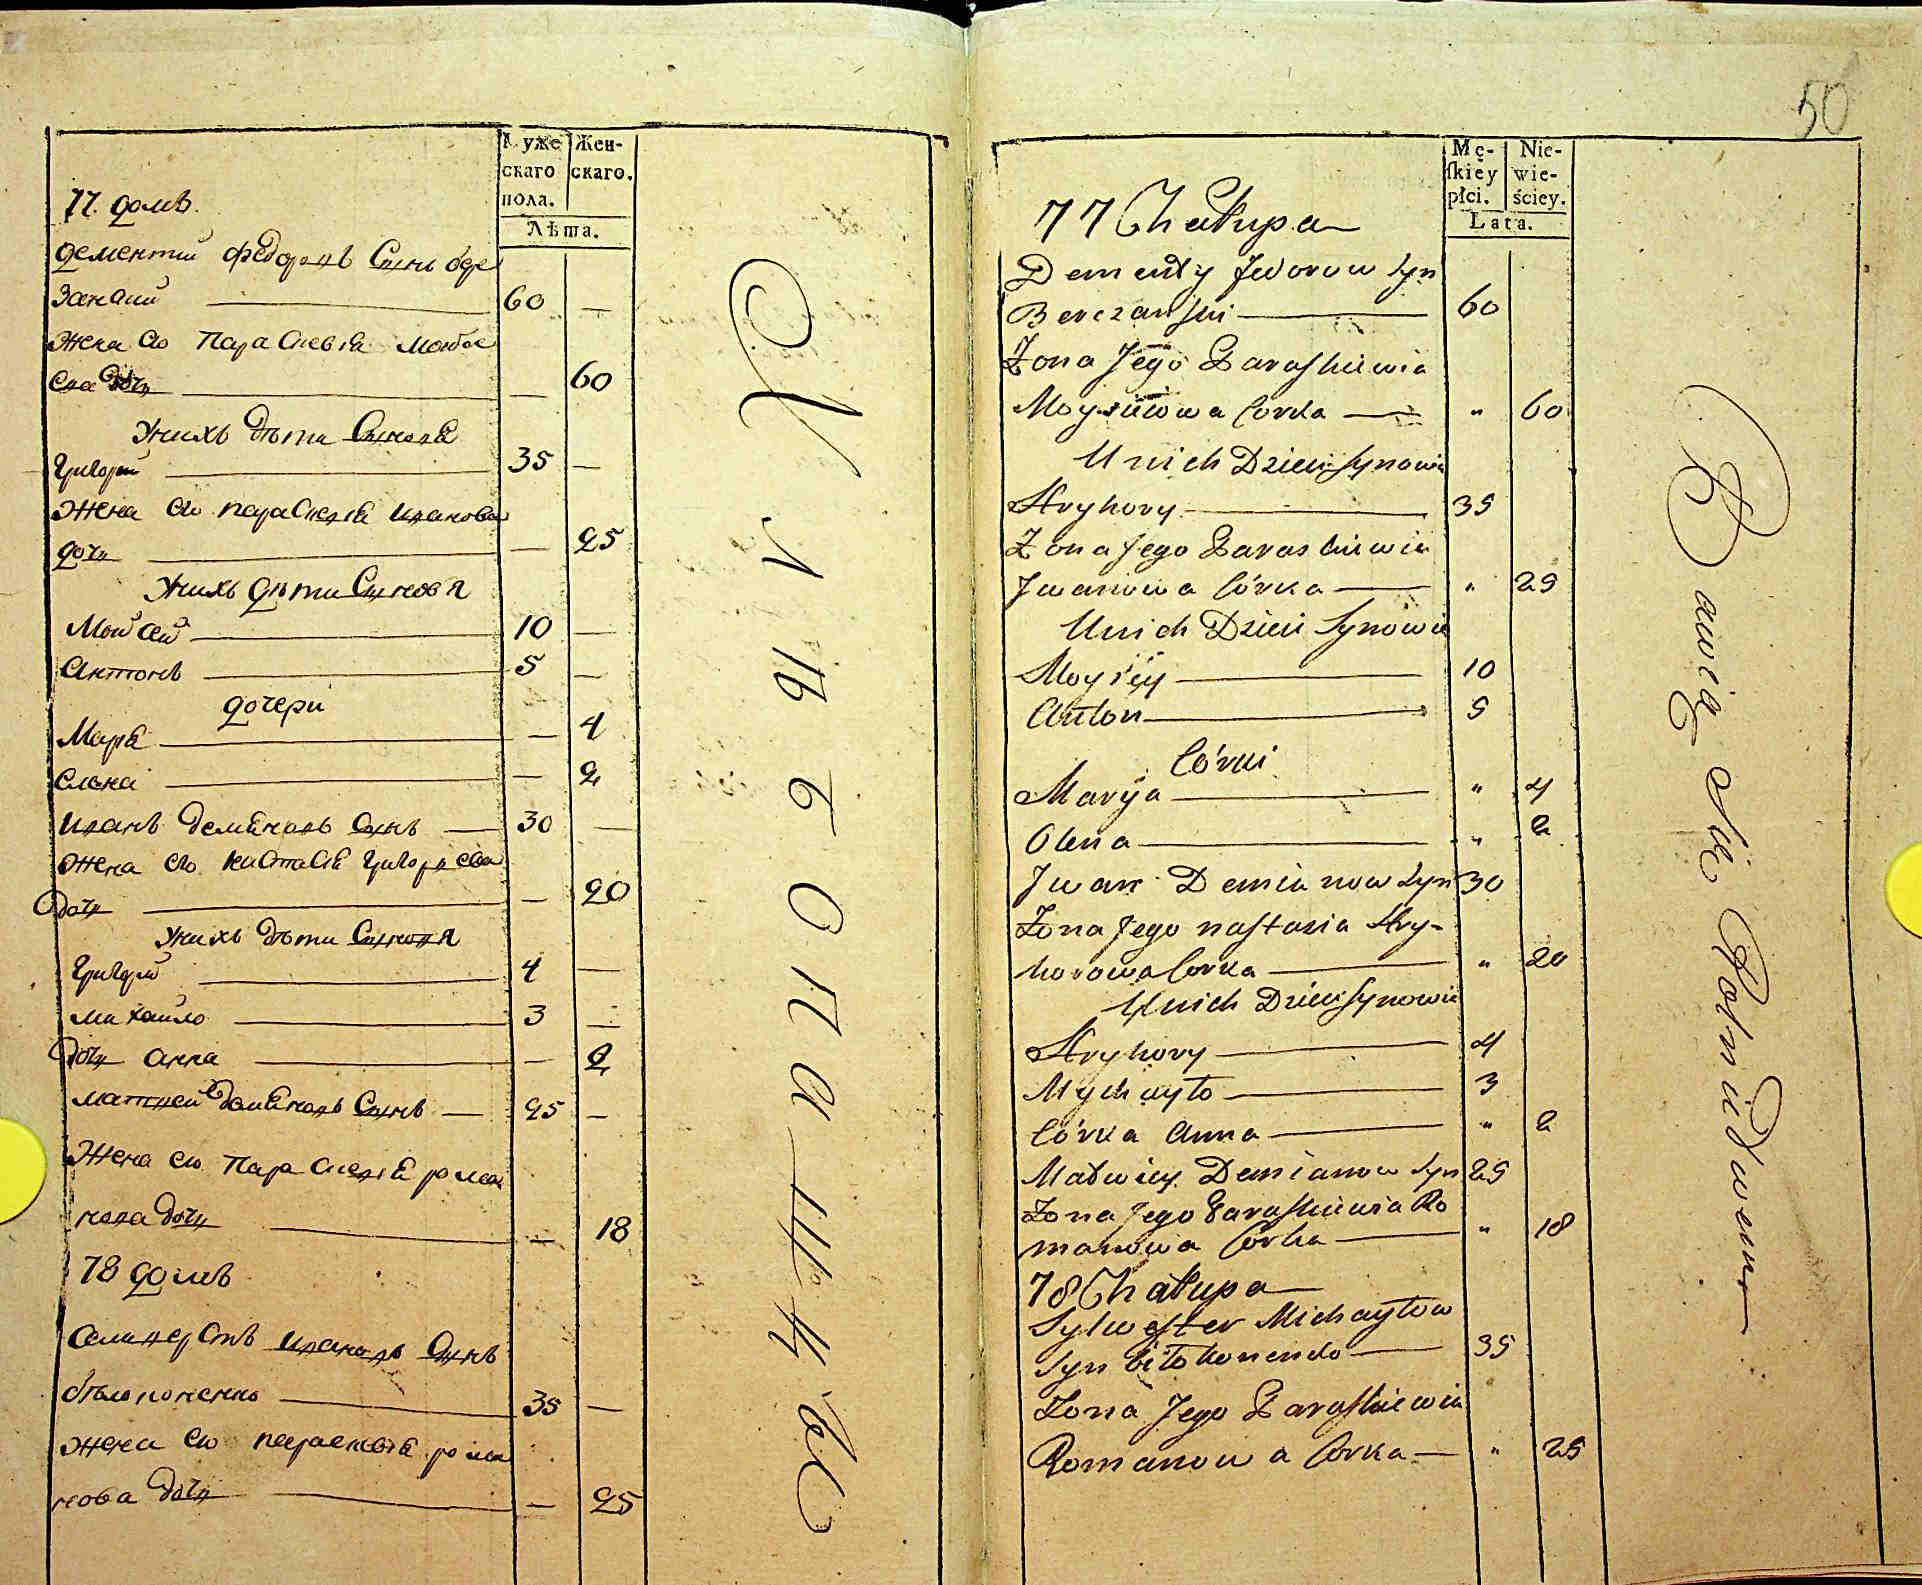 Мужескаго пола.
Женскаго.
Лѣта.
77. домъ
Дементий Федоровъ Сынъ бере
занский 60 —
Жена его Параскевія Мойсе
ева дочь — 60
У нихъ дѣти Сыновя
Григорий 35 —
Жена его параскевія иванова
дочь — 25
У нихъ дѣти Сыновя
Мойсей 10 —
Антонъ 5 —
дочери
Марія — 4
Елена — 2
Иванъ Деміяновъ Сынъ 30 —
Жена его настасія григориева
дочь — 20
У нихъ дѣти Сыновя
Григорий 4 —
Михайло 3 —
дочь анна — 2
Матвей Деміяновъ Сынъ 25 —
Жена его Параскевія рома
нова дочь — 18
78 домъ
Селиверстъ ивановъ Сынъ
бѣлоконенко 35 —
Жена его параскевія рома
нова дочь — 25
Хлѣбопашцы
50
Męskiey płci.
Niewieściey.
Lata.
77 Chałupa
Dementy Fedorow Syn
Berezanski 60
Żona Jego Paraskiewia
Moysiiowa Corka „ 60
U nich Dzieci Synowie
Hryhory 35
Żona Jego Paraskiewia
Jwanowa Córka „ 25
U nich Dzieci Synowie
Moysiy 10
Anton 5
Córki
Marya „ 4
Olena „ 2
Jwan Demianow Syn 30
Żona Jego nastasia Hry-
horowa Corka „ 20
U nich Dzieci Synowie
Hryhory 4
Mychayło 3
Córka Anna „ 2
Matwiey Demianow Syn 25
Żona Jego Paraskiewia Ro
manowa Corka „ 18
78 Chałupa
Sylwester Michayłow
Syn biłokonenko 35
Żona Jego Paraskiewia
Romanowa Corka „ 25
Bawią się Rolnidwem